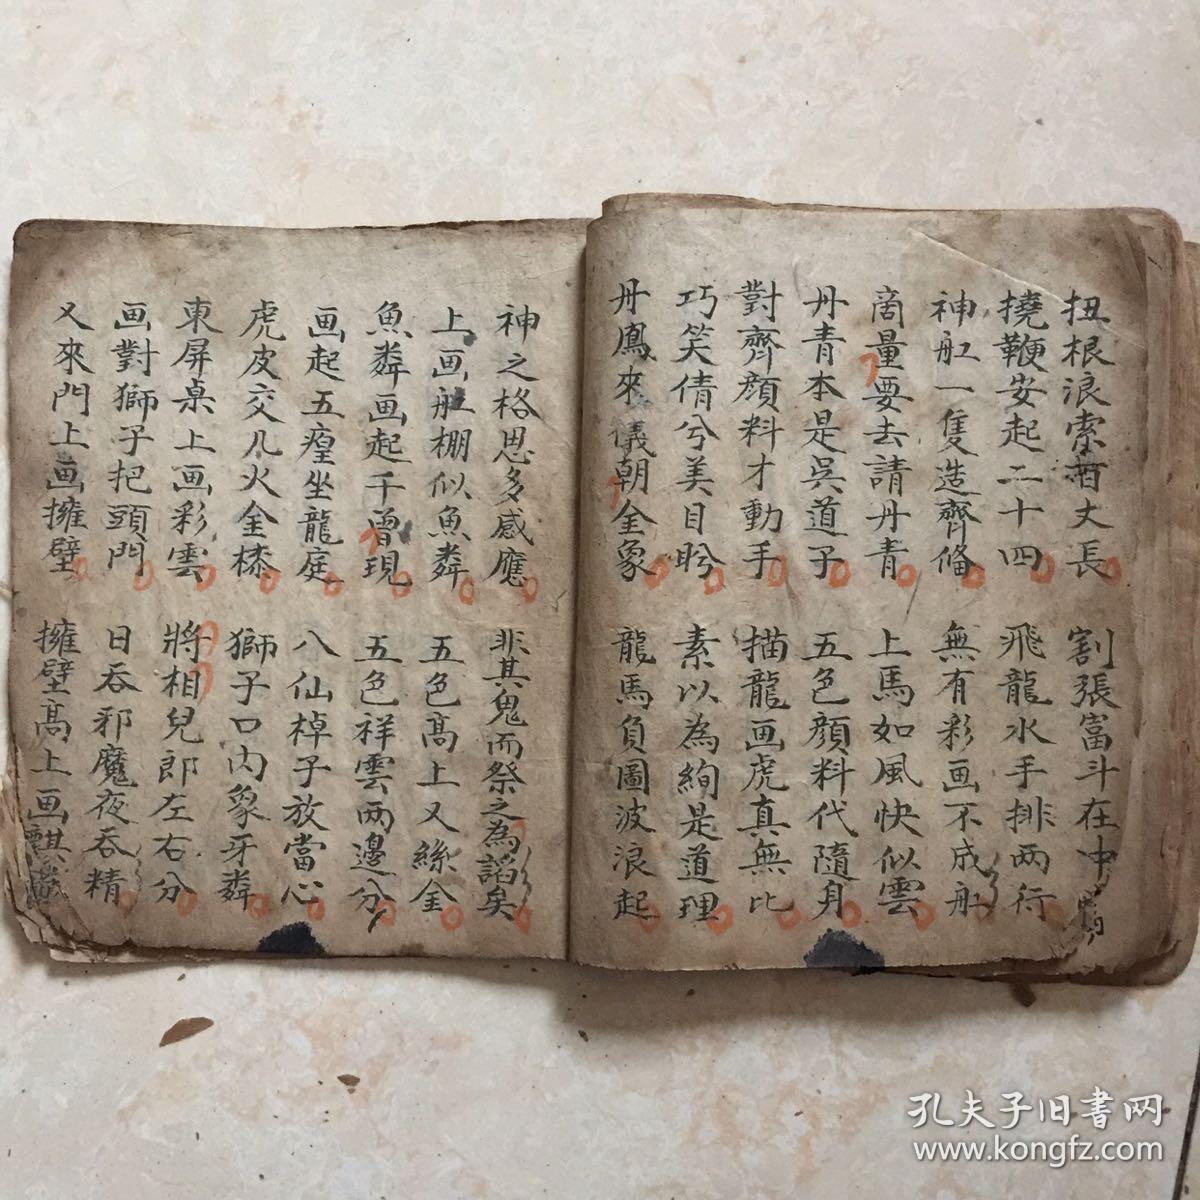 扭根浪索百丈長 割張富斗在中
撓鞭安起二十四 飛龍水手排两行
神舡一隻造齊俻 無有彩画不成舡
啇量要去請丹青 上馬如風快似雲
丹青本是吳道子 五色顔料代隨身
對齊顔料才動手 描龍画虎真無比
巧笑倩兮美目盻 素以為絢是道理
丹鳳來儀朝金象 龍馬負圖波浪起
神之格思多感應 非其鬼而祭之為謟矣
上画舡棚似魚粦 五色髙上又絲金
魚粦画起千曾現 五色祥雲两邊分
画起五瘟坐龍庭 八仙棹子放當心
虎皮交几火金漆 獅子口内象牙粦
東屏桌上画彩雲 將相兒郎左右分
画對獅子把頭門 日吞邪魔夜吞精
又來門上画擁壁 擁壁髙上画麒
孔夫子旧书网
www.kongfz.com